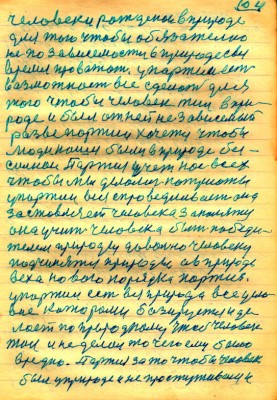 104
человека рождён в природе
для того чтобы обязательно
не по зависимости в природе свои
время проватот, у партии есть
возможност все сделот для
того чтобы человек жил в при
роде и был от ней не зависемый
разве портия хочет чтобы
люди наши были в природе бе-
ссилни Партия учет нас всех
чтобы мы делали потому что
у партии все спроведливает она
застовляет человека з
она учит человека быт победи-
телем природы довольно человеку
подчинятся природи, а в природе
веха нового порядка партия.
у партии сет вся природа все усло
вие каторами базируется и де
лоет по природному чтоб человек
жил и не делал того чего было
вредно. Партия за то чтобы человек
был у природе и не простуживался